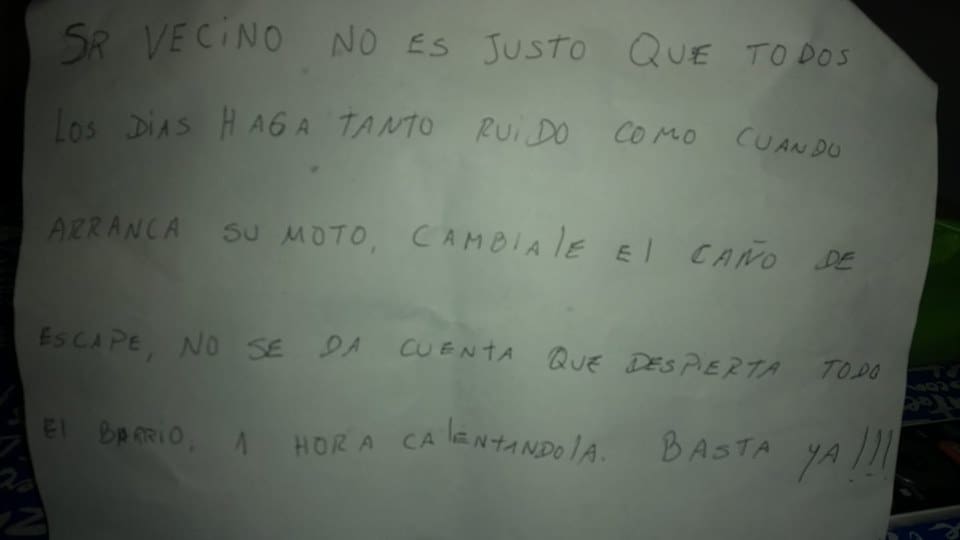 SR VECINO NO ES JUSTO QUE TODOS
LOS DIAS HAGA TANTO RUIDO COMO CUANDO
ARRANCA SU MOTO, CAMBIALE El CAÑO DE
ESCAPE, NO SE DA CUENTA QUE DESPIERTA TODO
El BARRIO, 1 HORA CALENTANDOLA. BASTA YA!!!